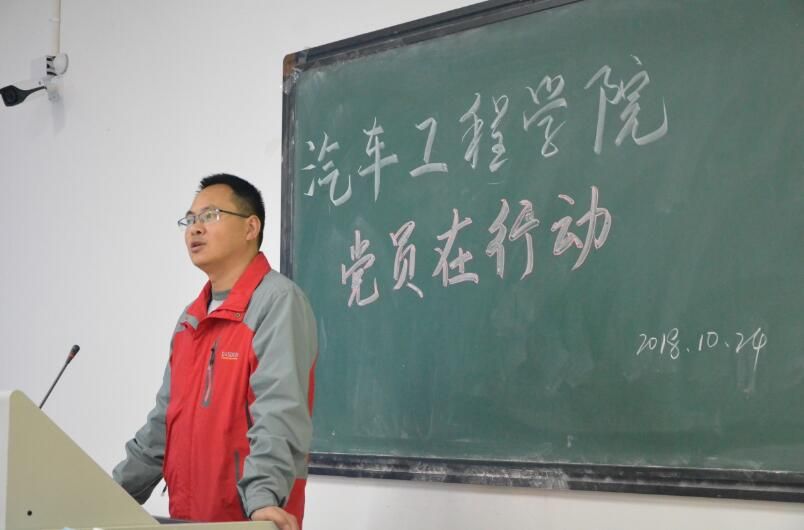 汽车工程学院
党员在行动
2018.10.24